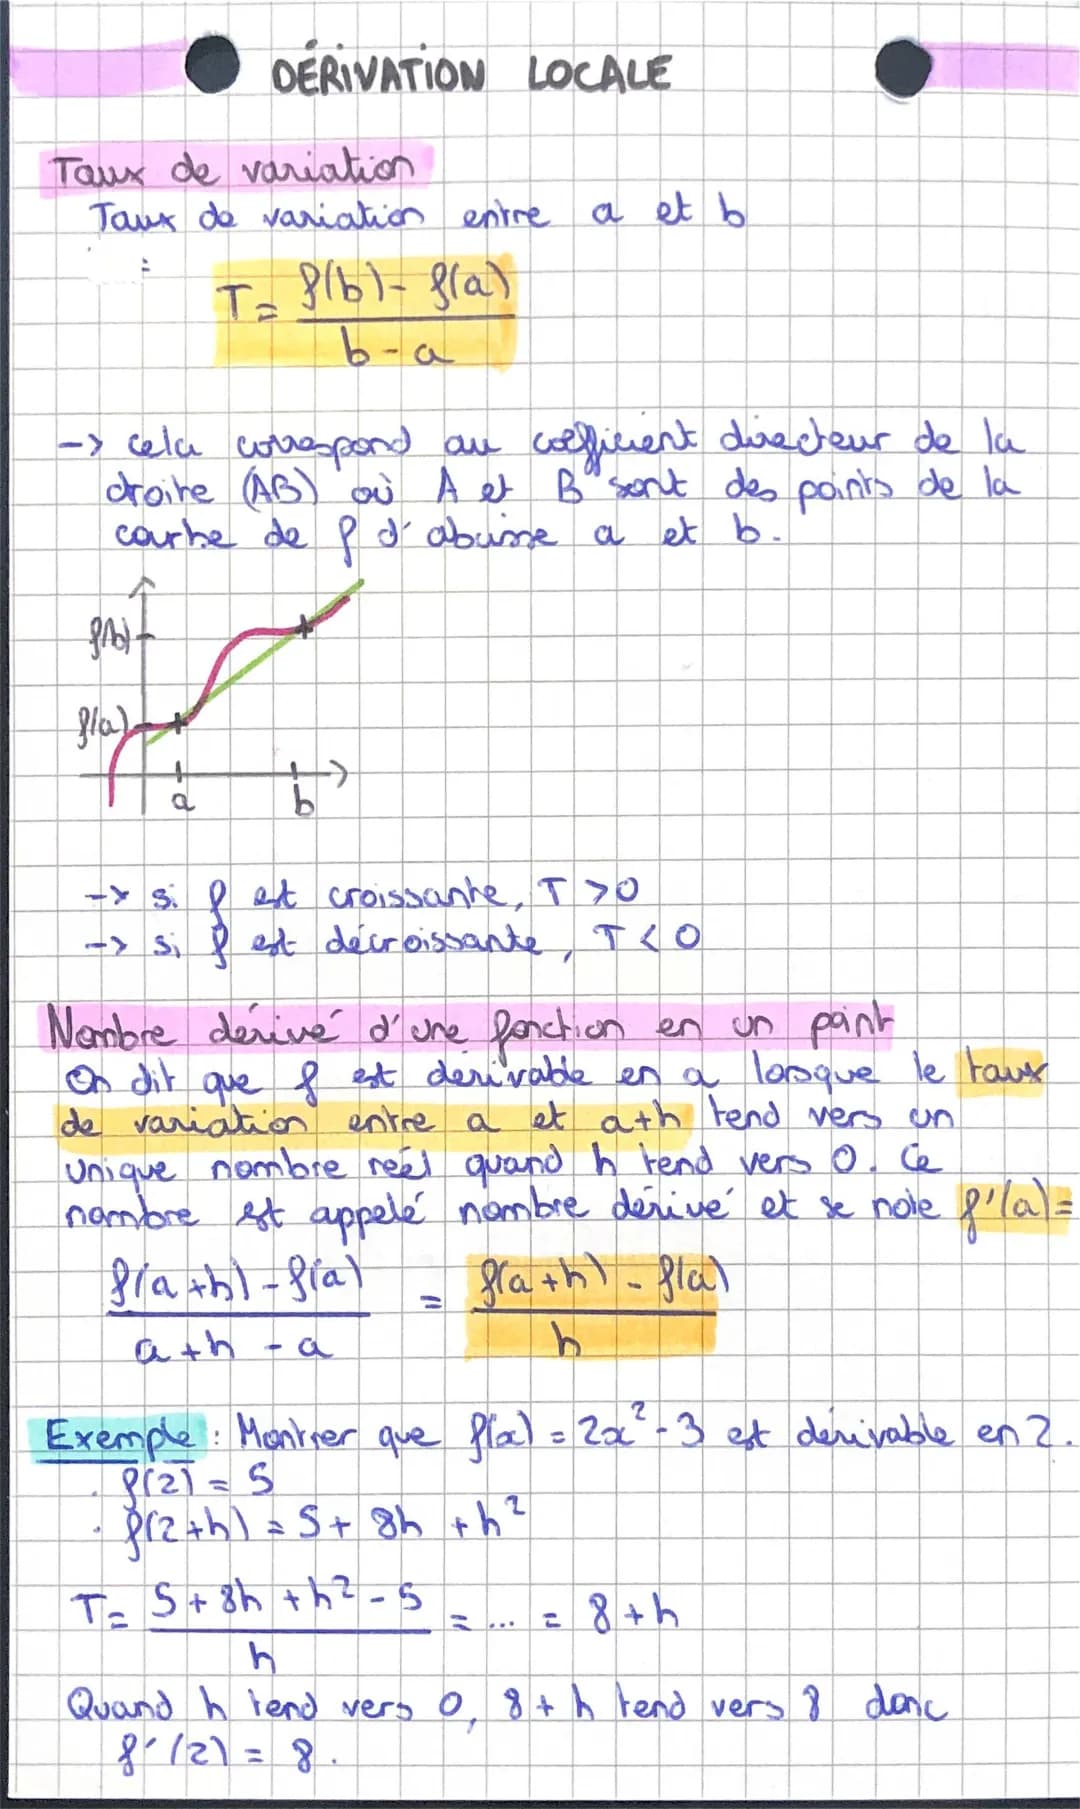 DÉRIVATION LOCALE
Taux de variation
Taux de variation entre a et b
:
T = f(b) - f(a)
b - a
-> cela correspond au coefficient directeur de la
droite (AB) où A et B sont des points de la
courbe de f d'abscisse a et b.
f(b)
f(a)
a
b
-> si f est croissante, T > 0
-> si f est décroissante, T < 0
Nombre dérivé d'une fonction en un point
On dit que f est dérivable en a lorsque le taux
de variation entre a et a+h tend vers un
unique nombre réel quand h tend vers 0. Ce
nombre est appelé nombre dérivé et se note f'(a) =
f(a+h) - f(a) = f(a+h) - f(a)
a+h - a h
Exemple : Montrer que f(x) = 2x² - 3 est dérivable en 2.
. f(2) = 5
. f(2+h) = 5 + 8h + h²
T = 5 + 8h + h² - 5 = ... = 8 + h
h
Quand h tend vers 0, 8 + h tend vers 8 donc
f'(2) = 8.